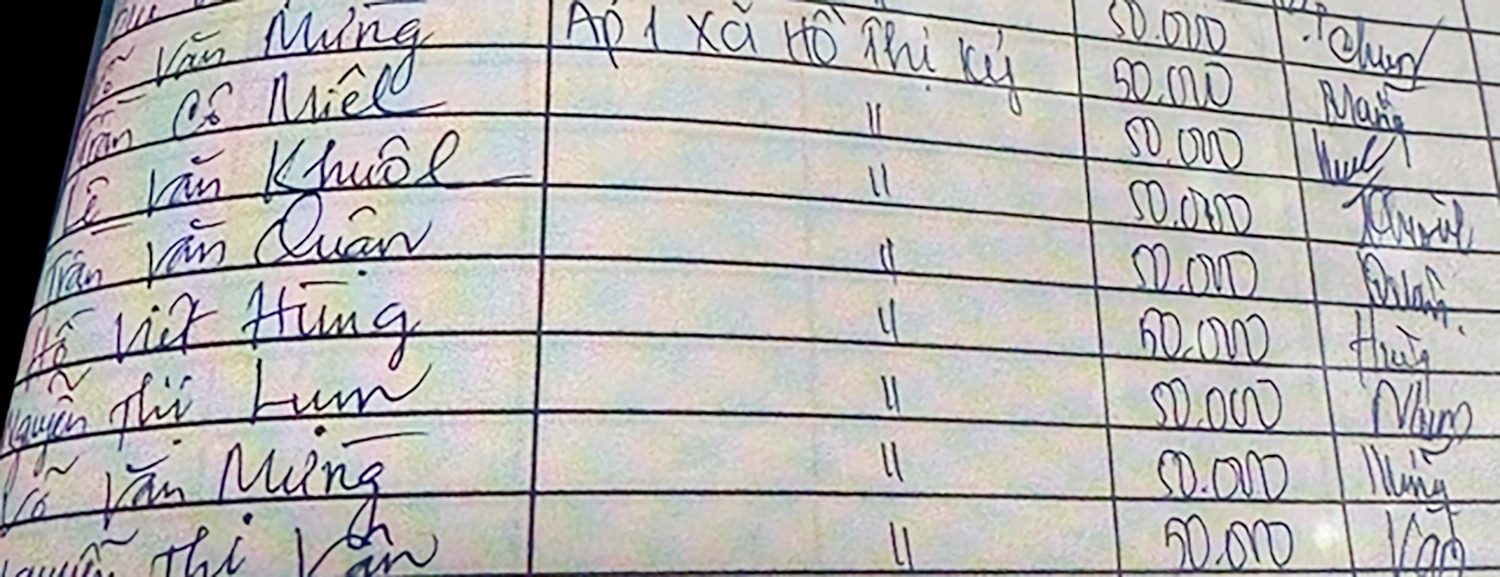 Văn Mừng Ấp 1 xã Hồ Thị Kỷ 50.000
Trần Cô Miêl " 50.000
Lê Văn Khuôl " 50.000
Trần Văn Quân " 50.000 Quân
Hồ Việt Hùng " 50.000 Hùng
Nguyễn Thị Lụm " 50.000
Võ Văn Mừng " 50.000 Mừng
Nguyễn Thị Vân " 50.000 Vân
50.000